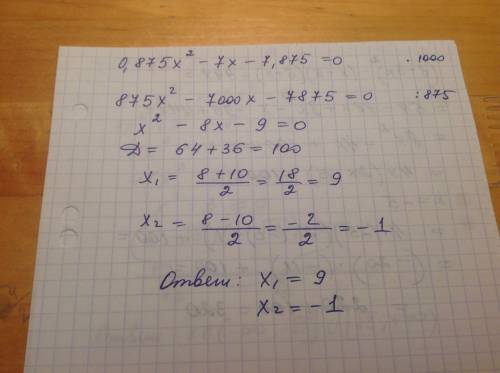 0,875x² - 7x - 7,875 = 0 · 1000
875x² - 7000x - 7875 = 0 : 875
x² - 8x - 9 = 0
D = 64 + 36 = 100
x₁ = (8 + 10)/2 = 18/2 = 9
x₂ = (8 - 10)/2 = -2/2 = -1
Ответ: x₁ = 9
x₂ = -1